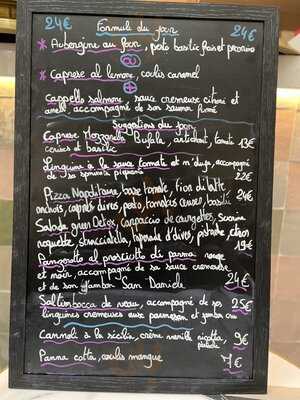 24€ Formule du jour 24€
* Aubergine au four, pesto basilic frais et pecorino
ou
* Caprese al limone, coulis caramel
+
Cappello salmone, sauce crémeuse citron et
aneth accompagné de son saumon fumé
Suggestions du jour
Caprese Mozzarella Bufala, artichaut, tomate
cerises et basilic 13€
Linguine à la sauce tomate et n'duja, accompagné
de sa spinata piquante 22€
Pizza Napolitana, base tomate, fior di latte,
anchois, câpres, olives, pesto, tomates cerises, basilic 24€
Salade green Detox, carpaccio de courgettes, sucrine
roquette, stracciatella, tapenade d'olives, pistache, citron
19€
Panzerotto al prosciutto di parma rouge
et noir, accompagné de sa sauce crémeuse
et de son jambon San Daniele 24€
Saltimbocca de veau, accompagné de ses 25€
linguines crémeuses aux parmesan et jambon cru
Cannoli à la sicilia, crème vanille ricotta, 9€
pistache
Panna cotta, coulis mangue 7€